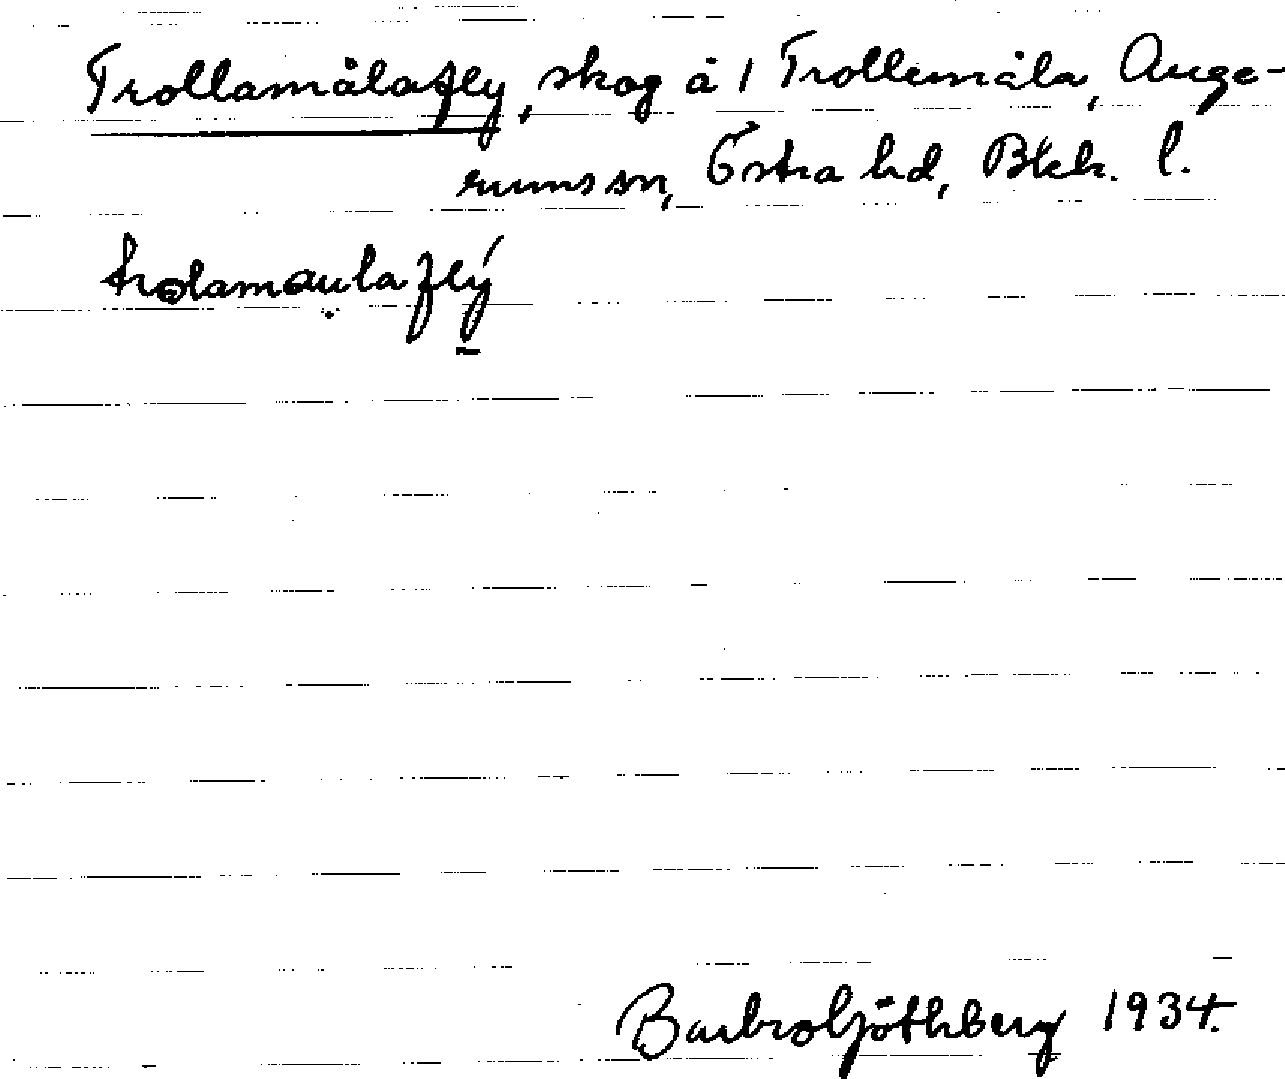 Trollamålafly, skog å 1 Trollemåla, Auge-
rums sn, Östra hd, Blek. l.
trolamaulaflý
Barbro Göthberg 1934.